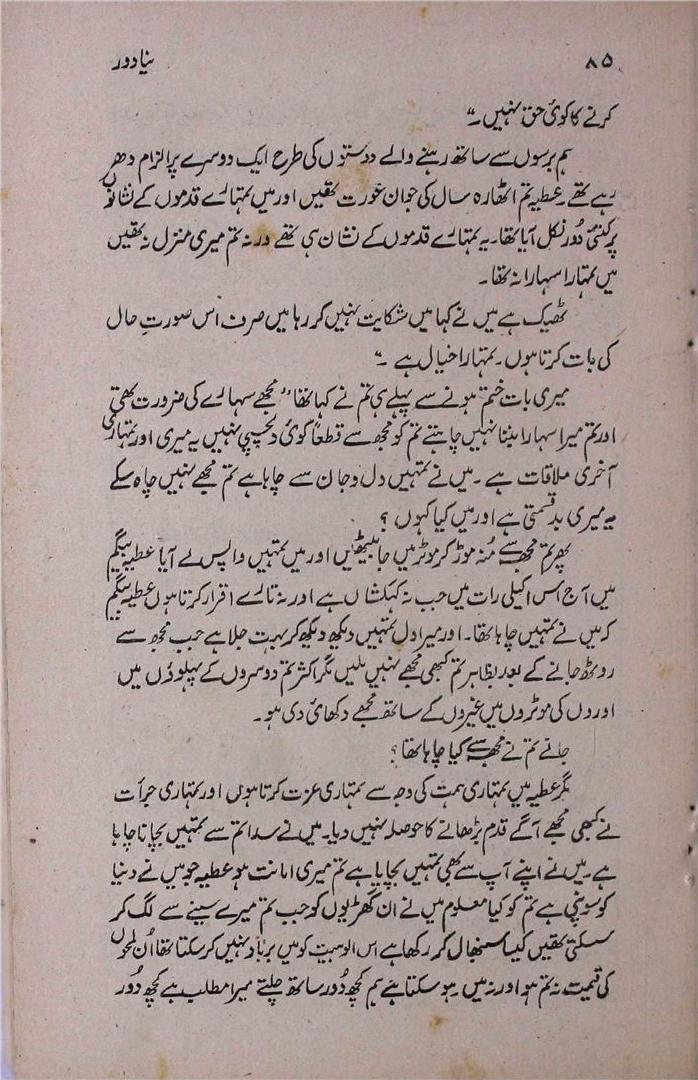 ۸۵ نیا دور
کرنے کا کوئی حق نہیں۔"
ہم برسوں سے ساتھ رہنے والے دوستوں کی طرح ایک دوسرے پر الزام دھر
رہے تھے۔ عطیہ تم اٹھارہ سال کی جوان عورت تھیں اور میں تمہارے قدموں کے نشانوں
پر کتنی دُور نکل آیا تھا۔ یہ تمہارے قدموں کے نشان ہی تھے ورنہ تم میری منزل نہ تھیں
میں تمہارا سہارا نہ تھا۔
ٹھیک ہے میں نے کہا میں شکایت نہیں کر رہا میں صرف اس صورتِ حال
کی بات کرتا ہوں۔ تمہارا خیال ہے ۔"
میری بات ختم ہونے سے پہلے ہی تم نے کہا تھا "مجھے سہارے کی ضرورت تھی
اور تم میرا سہارا بننا نہیں چاہتے تم کو مجھ سے قطعاً کوئی دلچسپی نہیں یہ میری اور تمہاری
آخری ملاقات ہے ۔ میں نے تمہیں دل و جان سے چاہا ہے تم مجھے نہیں چاہ سکے
یہ میری بدقسمتی ہے اور میں کیا کہوں ؟
پھر تم مجھ سے مُنہ موڑ کر موٹر میں جا بیٹھیں اور میں تمہیں واپس لے آیا عطیہ بیگم
میں آج اس اکیلی رات میں جب نہ کہکشاں ہے اور نہ تارے اقرار کرتا ہوں عطیہ بیگم
کہ میں نے تمہیں چاہا تھا۔ اور میرا دل تمہیں دیکھ دیکھ کر بہت جلا ہے جب مجھ سے
روٹھ جانے کے بعد بظاہر تم کبھی مجھے نہیں ملیں مگر اکثر تم دوسروں کے پہلوؤں میں
اوروں کی موٹروں میں غیروں کے ساتھ مجھے دکھائی دی ہو۔
جانے تم نے مجھ سے کیا چاہا تھا؟
مگر عطیہ میں تمہاری ہمت کی وجہ سے تمہاری عزت کرتا ہوں اور تمہاری جرأت
نے کبھی مجھے آگے قدم بڑھانے کا حوصلہ نہیں دیا۔ میں نے سدا تم سے تمہیں بچانا چاہا
ہے۔ میں نے اپنے آپ سے بھی تمہیں بچایا ہے تم میری امانت ہو عطیہ جو میں نے دنیا
کو سونپی ہے تم کو کیا معلوم میں نے ان گھڑیوں کو جب تم میرے سینے سے لگ کر
سسکتی تھیں کیسا سنبھال کر رکھا ہے اس الوہیت کو میں برباد نہیں کر سکتا تھا اُن لمحوں
کی قیمت نہ تم ہو اور نہ میں ۔ ہو سکتا ہے ہم کچھ دُور ساتھ چلتے میرا مطلب ہے کچھ دُور